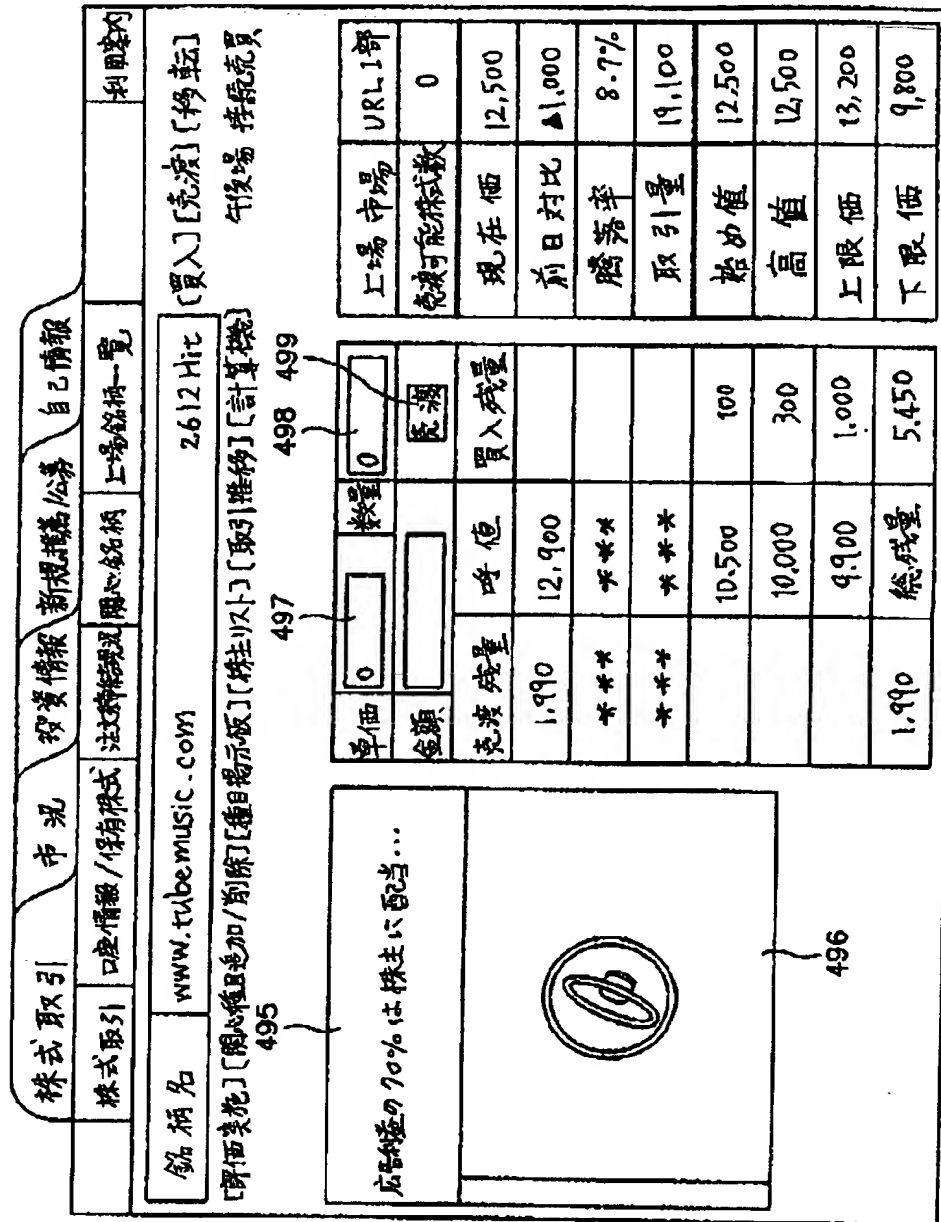 株式取引 市況 投資情報 新規推薦/公募 自己情報
株式取引 口座情報/保有株式 注文/締結現況 関心銘柄 上場銘柄一覧 利用案内
銘柄名 www.tubemusic.com 2612 Hit [買入][売渡][移転]
[評価実施][関心種目追加/削除][種目掲示板][株主リスト][取引推移][計算機] 午後場 接続売買
495
広告利益の70%は株主に配当...
496
497
498
499
単価 0 数量 0
金額 売渡
売渡残量 呼値 買入残量
1,990 12,900
*** ***
*** ***
10.500 100
10,000 300
9.900 1.000
1.990 総残量 5.450
上場市場 URL1部
売渡可能株式数 0
現在価 12,500
前日対比 ▲1,000
騰落率 8.7%
取引量 19,100
始め値 12,500
高値 12,500
上限価 13,200
下限価 9,800